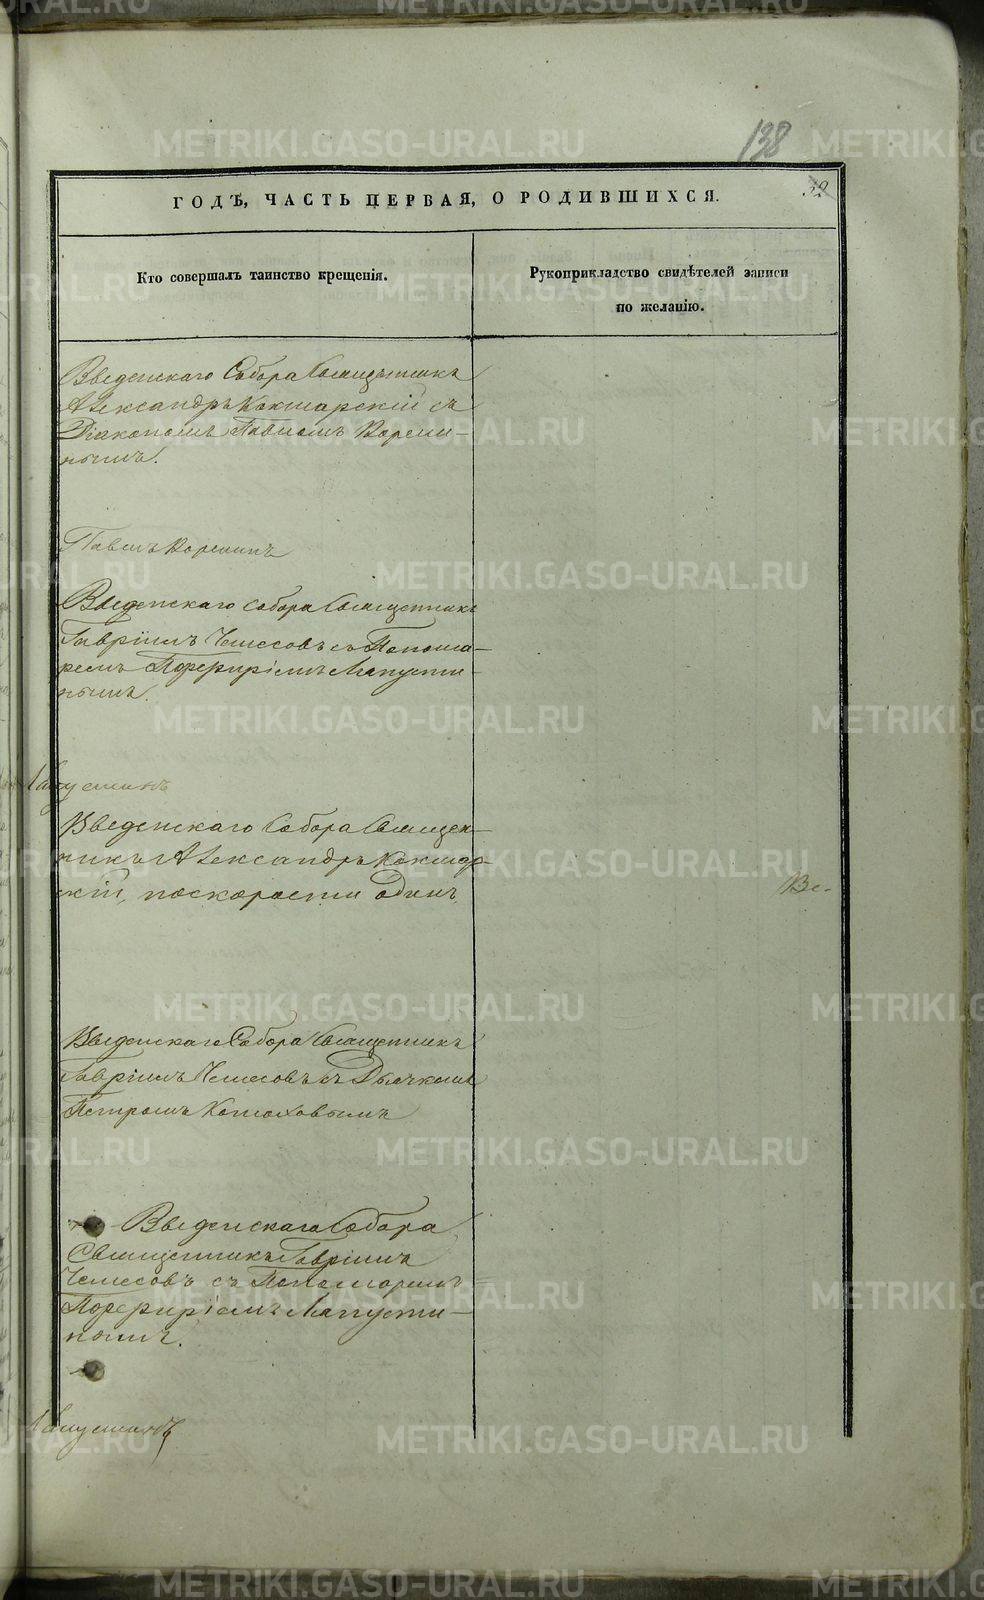 138
32
ГОДЪ, ЧАСТЬ ПЕРВАЯ, О РОДИВШИХСЯ.
Кто совершалъ таинство крещенія.
Рукоприкладство свидѣтелей записи
по желанію.
Введенскаго Собора Священникъ
Александръ Кокшарскій съ
Діакономъ Павломъ Корени-
нымъ.
Павелъ Коренинъ
Введенскаго Собора Священникъ
Гавріилъ Чемесовъ съ Понома-
ремъ Порфиріемъ Лапусти-
нымъ.
Лапустинъ
Введенскаго Собора Священ-
никъ Александръ Кокшар-
скій, поскорости одинъ.
Ве-
Введенскаго Собора Священникъ
Гавріилъ Чемесовъ съ Дьячкомъ
Петромъ Конюховымъ
Введенскаго Собора
Священникъ Гавріилъ
Чемесовъ съ Пономаремъ
Порфиріемъ Лапусти-
нымъ.
Лапустинъ
METRIKI.GASO-URAL.RU